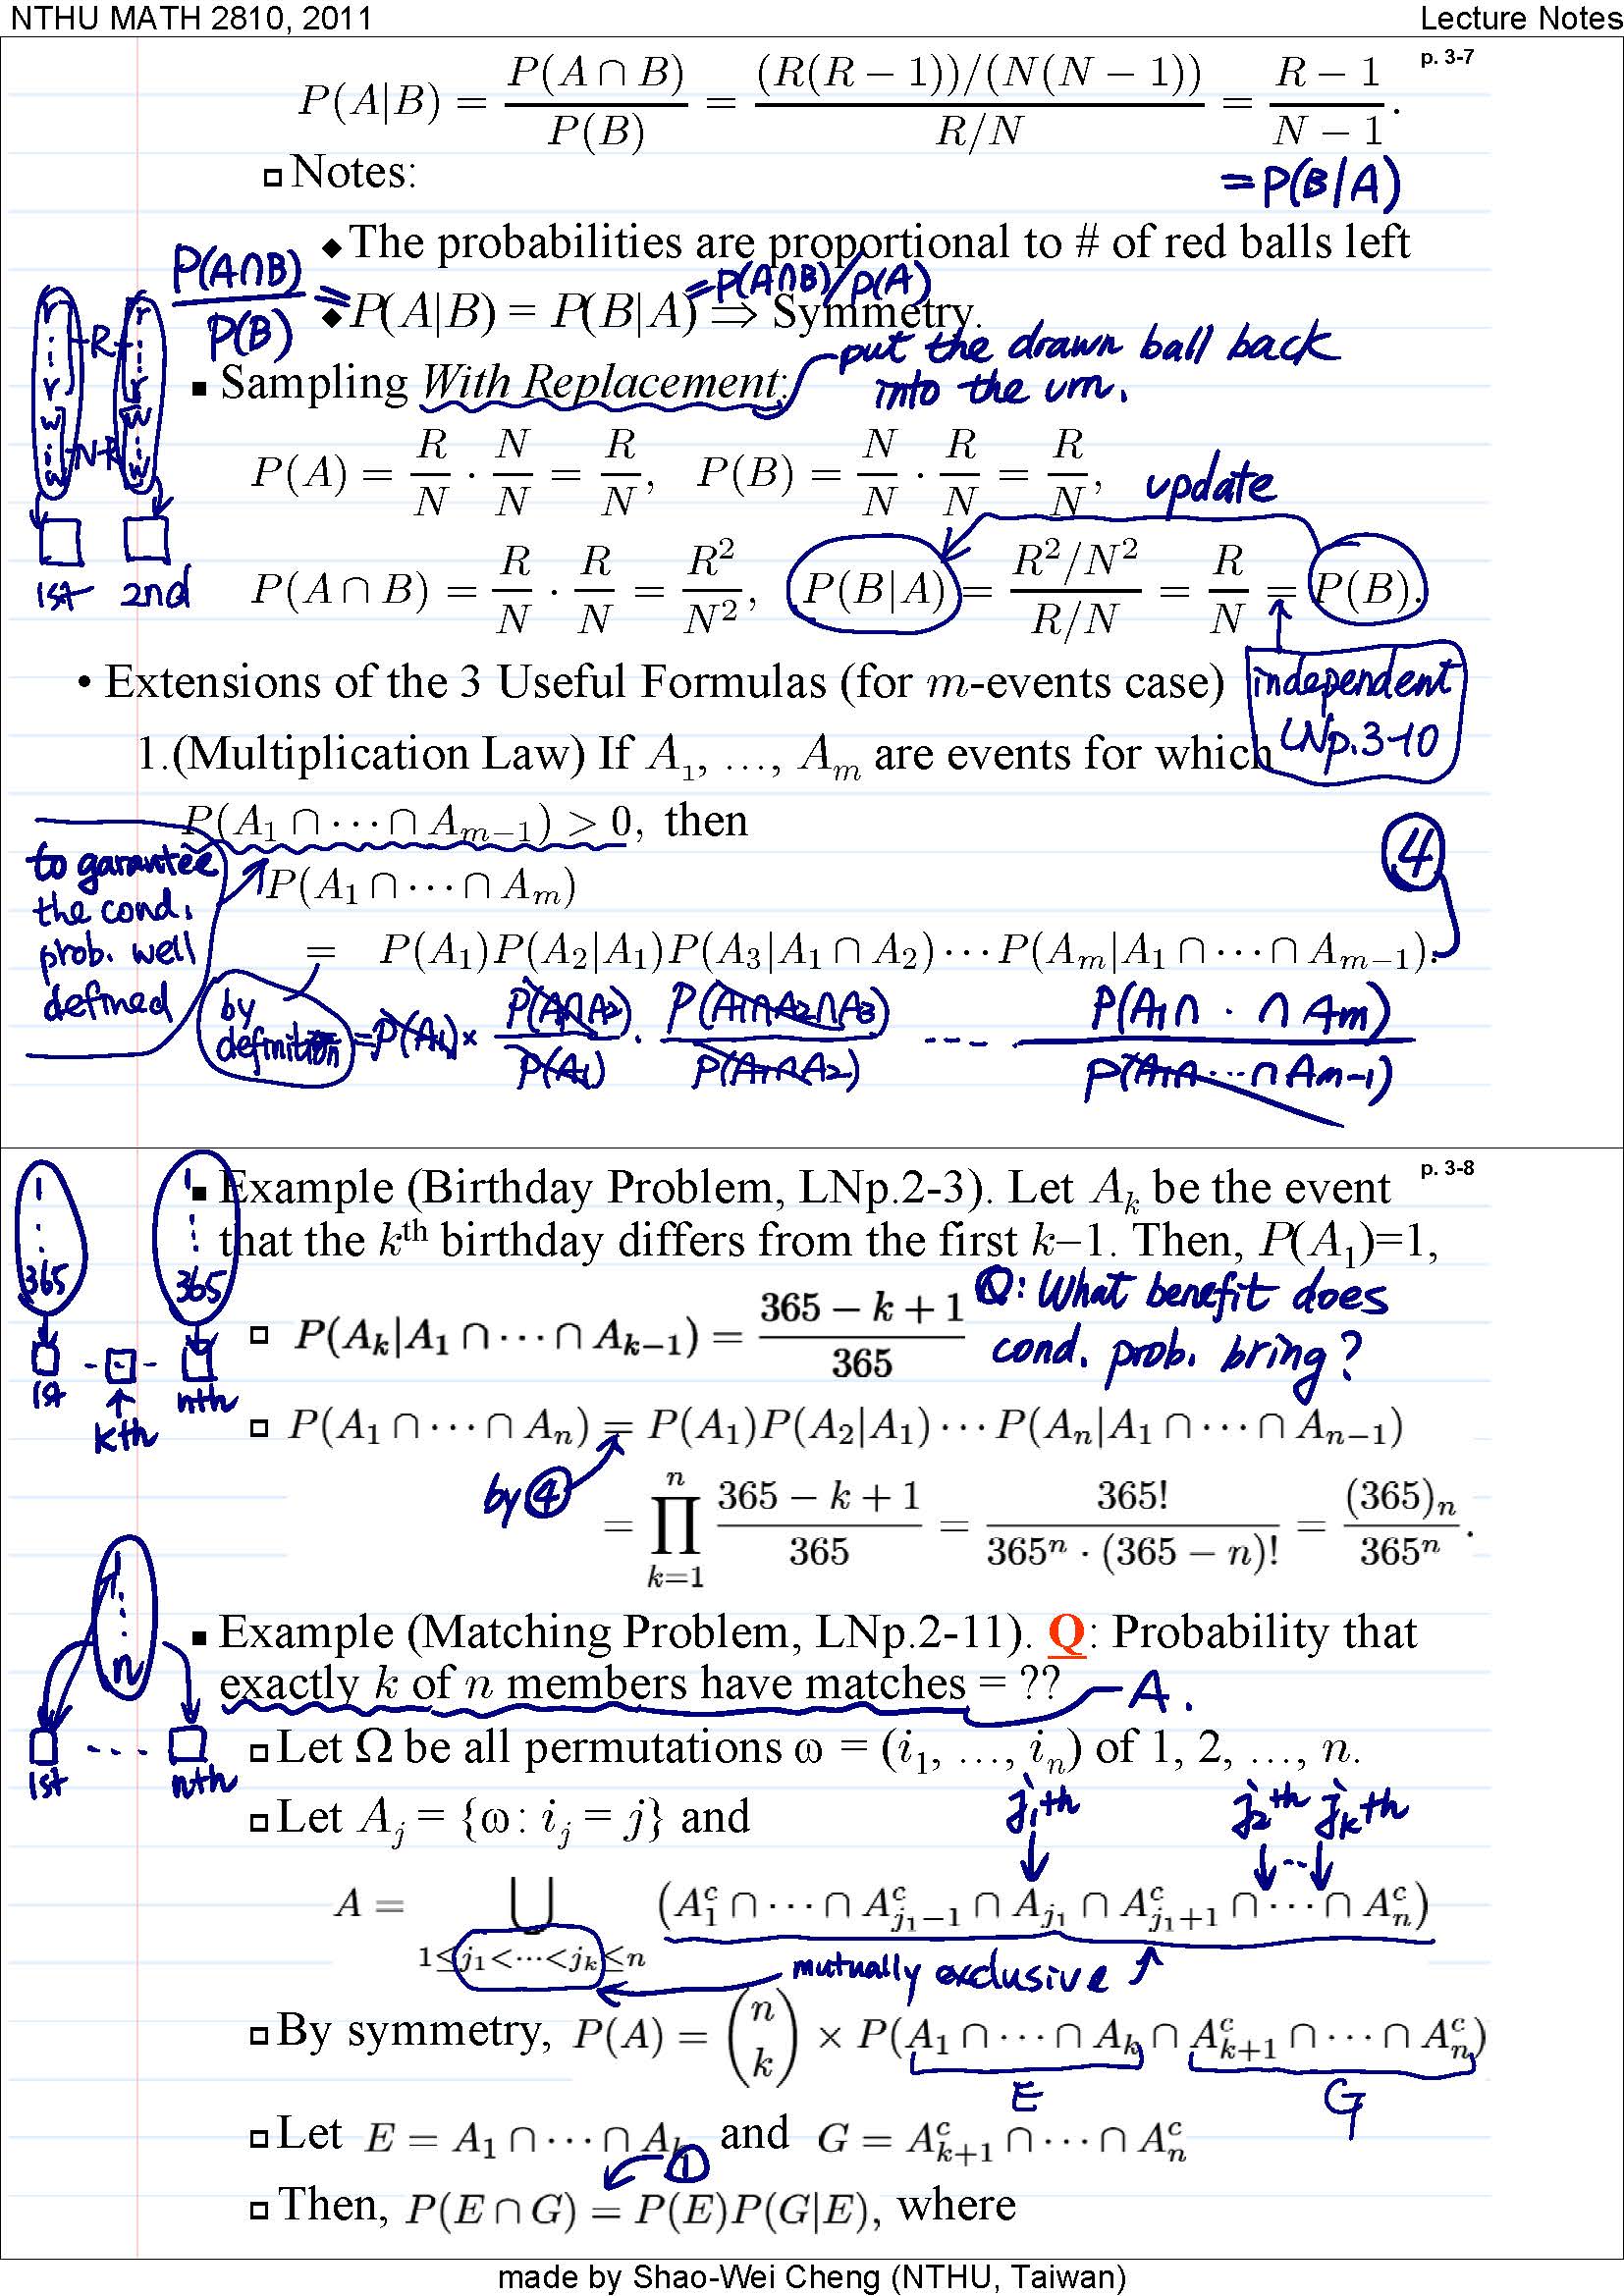 NTHU MATH 2810, 2011 Lecture Notes
p. 3-7
P(A|B) = P(A ∩ B) / P(B) = (R(R − 1))/(N(N − 1)) / R/N = R − 1 / N − 1 .
= P(B|A)
Notes:
The probabilities are proportional to # of red balls left
P(A∩B) / P(B) =
P(A|B) = P(B|A) ⇒ Symmetry.
= P(A∩B)/P(A)
r r
R
r r
w w
N-R
w w
1st 2nd
Sampling With Replacement:
put the drawn ball back
into the urn.
P(A) = R/N · N/N = R/N, P(B) = N/N · R/N = R/N,
update
P(A ∩ B) = R/N · R/N = R²/N², P(B|A) = R²/N² / R/N = R/N = P(B).
independent
LNp.3-10
• Extensions of the 3 Useful Formulas (for m-events case)
1.(Multiplication Law) If A₁, …, Aₘ are events for which
P(A₁ ∩ ⋯ ∩ Aₘ₋₁) > 0, then
to garantee
the cond.
prob. well
defined
P(A₁ ∩ ⋯ ∩ Aₘ)
= P(A₁)P(A₂|A₁)P(A₃|A₁ ∩ A₂) ⋯ P(Aₘ|A₁ ∩ ⋯ ∩ Aₘ₋₁).
④
by
definition
= P(A₁) × P(A₁∩A₂) / P(A₁) · P(A₁∩A₂∩A₃) / P(A₁∩A₂) --- P(A₁∩ · ∩Aₘ) / P(A₁∩ ⋯ ∩Aₘ₋₁)
p. 3-8
Example (Birthday Problem, LNp.2-3). Let Aₖ be the event
that the kth birthday differs from the first k−1. Then, P(A₁)=1,
1 1
365 365
1st kth nth
P(Aₖ|A₁ ∩ ⋯ ∩ Aₖ₋₁) = 365 − k + 1 / 365
Q: What benefit does
cond. prob. bring?
P(A₁ ∩ ⋯ ∩ Aₙ) = P(A₁)P(A₂|A₁) ⋯ P(Aₙ|A₁ ∩ ⋯ ∩ Aₙ₋₁)
by ④
= ∏ₖ₌₁ⁿ 365 − k + 1 / 365 = 365! / 365ⁿ · (365 − n)! = (365)ₙ / 365ⁿ .
Example (Matching Problem, LNp.2-11). Q: Probability that
exactly k of n members have matches = ??
A.
1
n
1st nth
Let Ω be all permutations ω = (i₁, …, iₙ) of 1, 2, …, n.
Let Aⱼ = {ω: iⱼ = j} and
j₁th j₂th jₖth
A = ⋃ 1≤j₁<⋯<jₖ≤n (A₁ᶜ ∩ ⋯ ∩ Aᶜ_{j₁−1} ∩ A_{j₁} ∩ Aᶜ_{j₁+1} ∩ ⋯ ∩ Aₙᶜ)
mutually exclusive
By symmetry, P(A) = (n k) × P(A₁ ∩ ⋯ ∩ Aₖ ∩ Aᶜₖ₊₁ ∩ ⋯ ∩ Aₙᶜ)
E G
Let E = A₁ ∩ ⋯ ∩ Aₖ and G = Aᶜₖ₊₁ ∩ ⋯ ∩ Aₙᶜ
①
Then, P(E ∩ G) = P(E)P(G|E), where
made by Shao-Wei Cheng (NTHU, Taiwan)